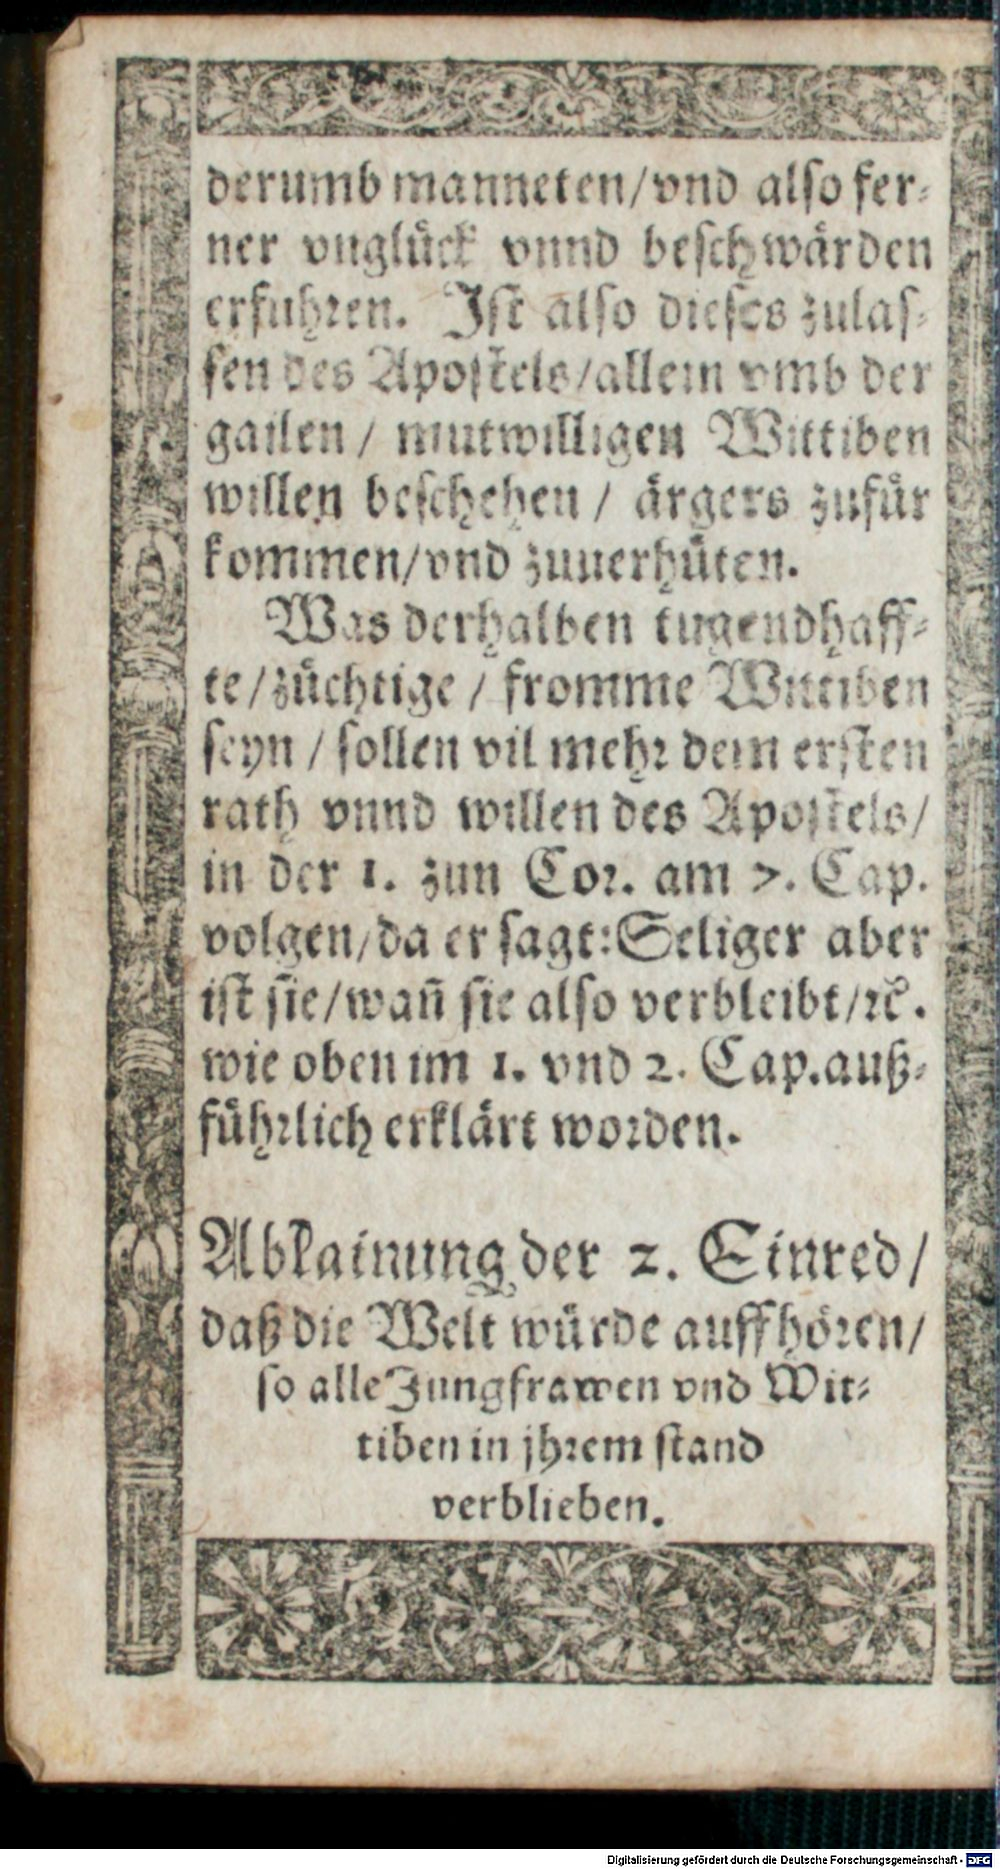 derumb manneten/ vnd also fer⸗
ner vnglück vnnd beschwärden
erfuhren. Ist also dieses zulas⸗
sen des Apostels/ allein vmb der
gailen / mutwilligen Wittiben
willen beschehen / ärgers zufür
kommen/ vnd zuuerhüten.
Was derhalben tugendhaff⸗
te / züchtige / fromme Wittiben
seyn / sollen vil mehr dem ersten
rath vnnd willen des Apostels/
in der 1. zun Cor. am 7. Cap.
volgen/ da er sagt: Seliger aber
ist sie/ wañ sie also verbleibt/ ꝛc.
wie oben im 1. vnd 2. Cap. auß⸗
führlich erklärt worden.
Ablainung der 2. Einred/
daß die Welt würde auffhören/
so alle Jungfrawen vnd Wit⸗
tiben in jhrem stand
verblieben.
Digitalisierung gefördert durch die Deutsche Forschungsgemeinschaft - DFG